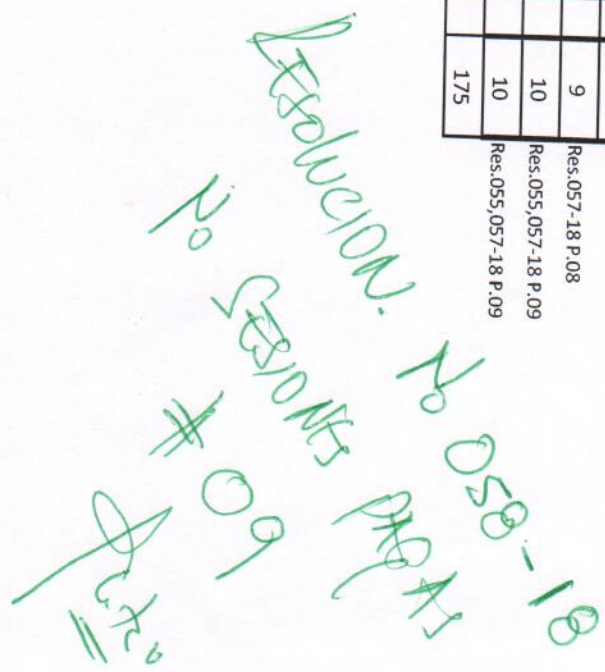 9 Res.057-18 P.08
10 Res.055,057-18 P.09
10 Res.055,057-18 P.09
175
RESOLUCION. No 058-18
No SESIONES PAGAS
# 09